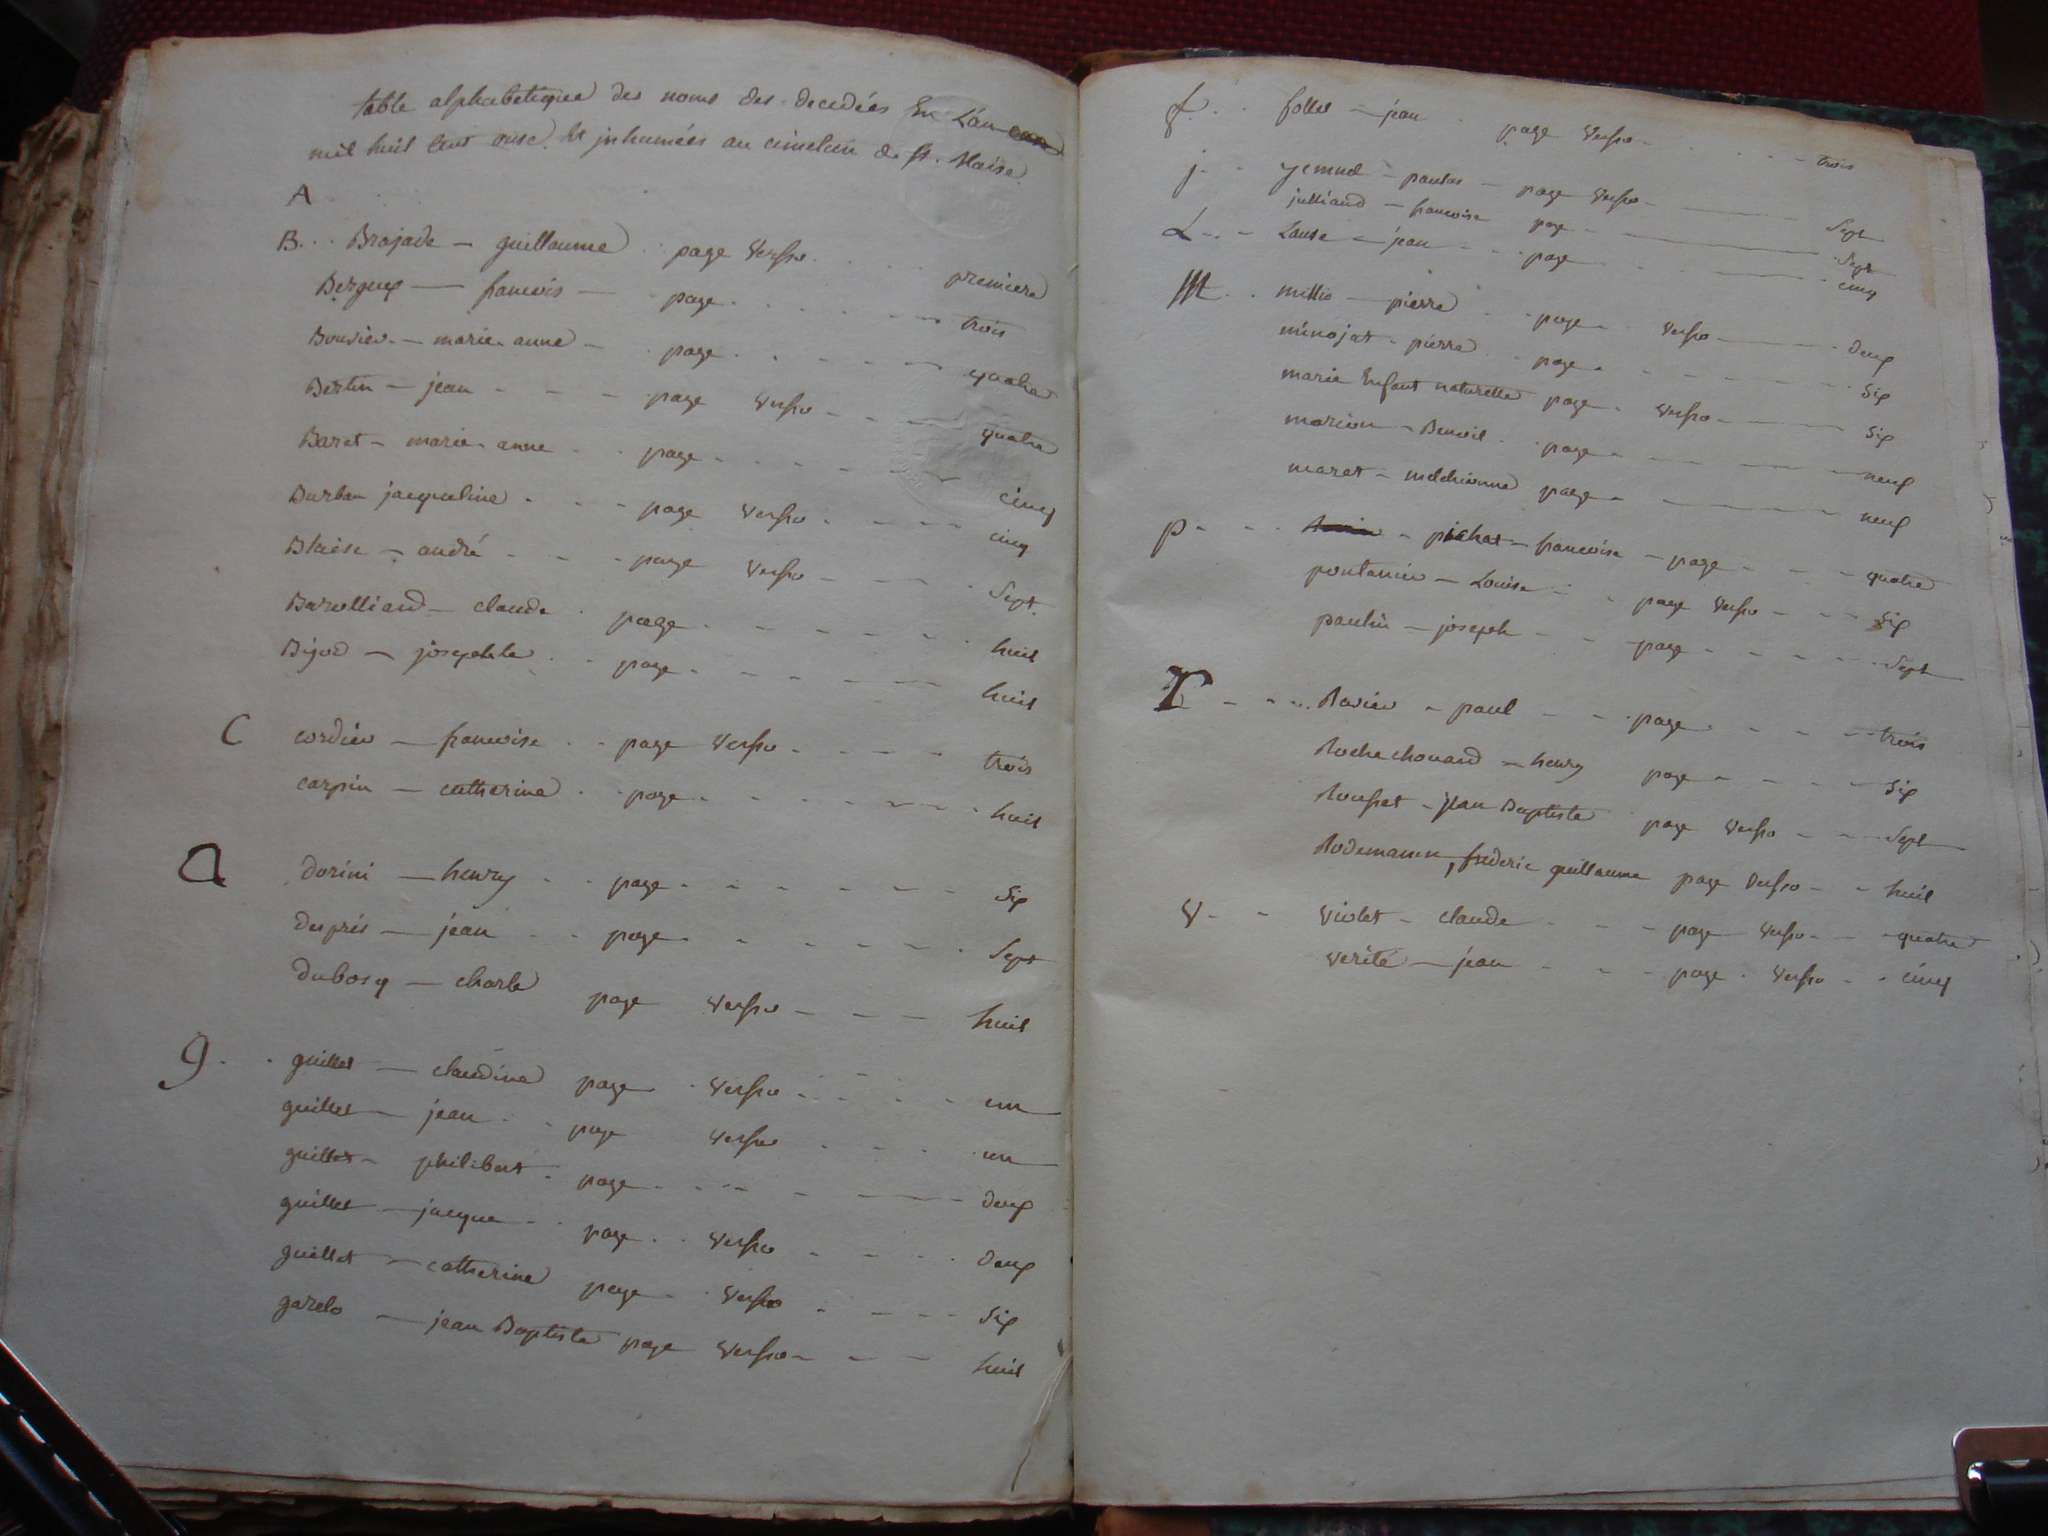 table alphabetique des noms des decedées En L'an
mil huit cent onse et inhumées au cimetiere de st. Blaise
A
B... Brajade — guillaume . page Verso. première
Bergues — francois — page . . . trois
Bouvier — marie anne — page . . . quatre
Bertin — jean - - - page Verso - - - quatre
Baret — marie anne . . page . . . cinq
Burban jacqueline . . . page Verso . . . cinq
Blaise — andré - - - page Verso - - - Sept
Barolliard — claude . page . . . huit
Bigod — josephte . . page . . . huit
C cordier — francoise . . page Verso . . . trois
carpin — catherine . . page . . . huit
D dorini — henry . . page . . . Six
duprés — jean . . page . . . Sept
dubosq — charle page Verso - - - huit
g . . guillet — claudine page . Verso . . . un
guillet — jean . . page Verso . . . un
guillet — philibert . page . . . deux
guillet — jacque . . page . . Verso . . . deux
guillet — catherine page . Verso . . . Six
garelo — jean Baptiste page Verso - - - huit
f. . follet — jean . page Verso - . . . trois
j. . page Verso - Sept
julliand — francoise page - Sept
L - . - Lause — jean - - . page - cinq
M . . millio — pierre . . page . Verso - deux
minojat - pierre . . page . . . Six
marie Enfant naturelle page . Verso - Six
marion - Benoit . . page . . . neuf
maret — melchionne page . . . neuf
p - - - pichat — francoise — page - - - quatre
pontanier — Louise - - - page Verso - - - Six
paulin — joseph - - - page - - - Sept
r - - ... Ravier - paul - - page . . . trois
Rochechouard — henry page - - - Six
Rousset - jean Baptiste page Verso - - - Sept
Rodemann, frederic guillaume page Verso - - huit
V - - violet — claude . . . page Verso - - quatre
verité — jean - - - page . Verso - - cinq